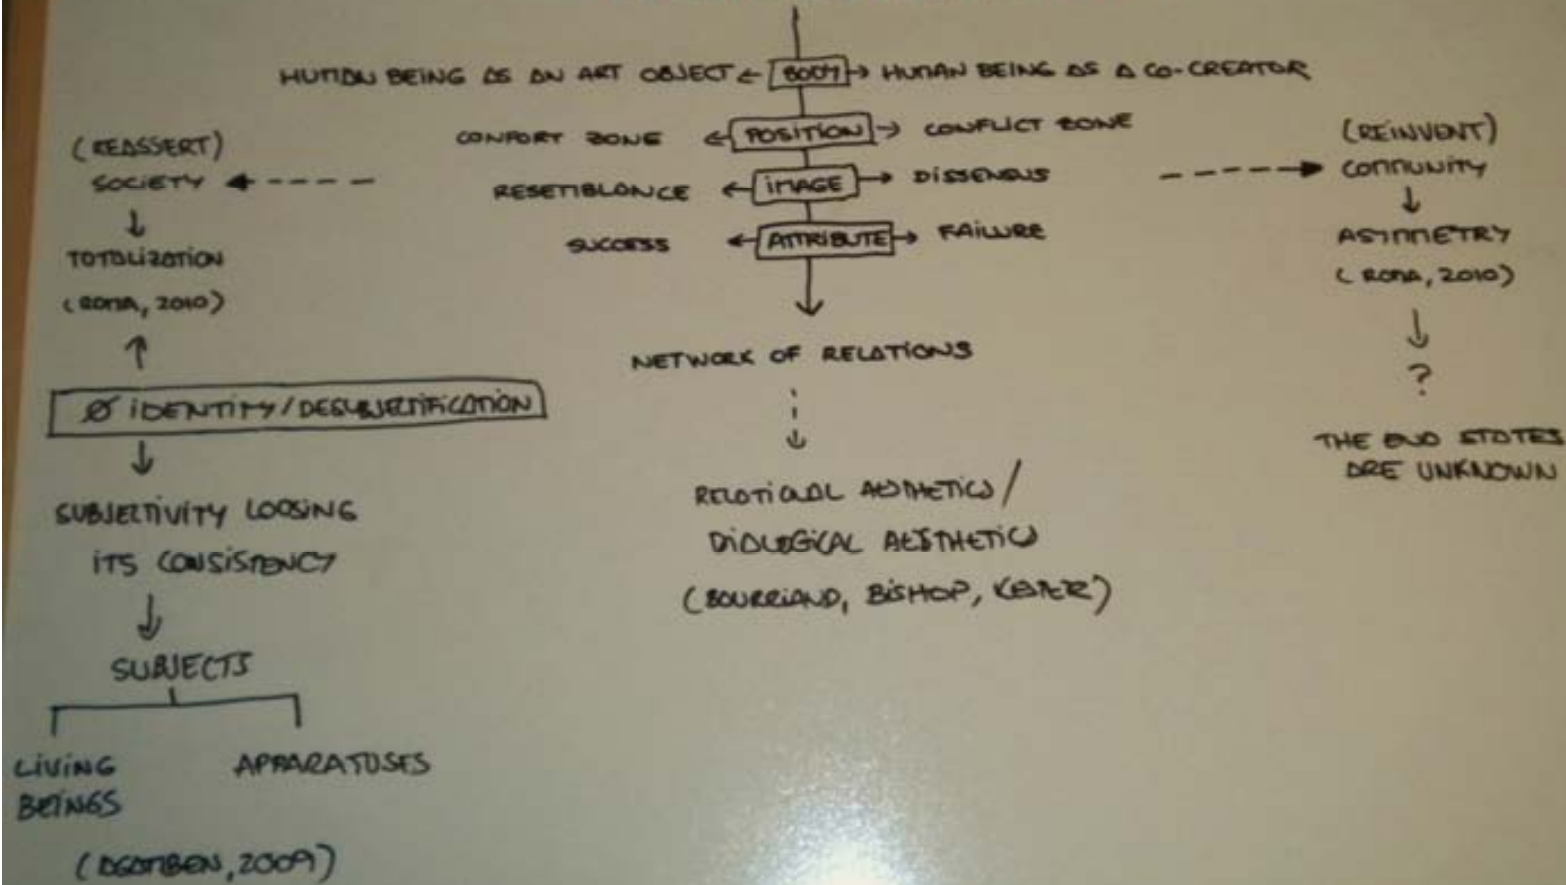 HUMAN BEING AS AN ART OBJECT ← BODY → HUMAN BEING AS A CO-CREATOR
CONFORT ZONE ← POSITION → CONFLICT ZONE
RESEMBLANCE ← IMAGE → DISSENSUS
SUCCESS ← ATTRIBUTE → FAILURE
NETWORK OF RELATIONS
RELATIONAL AESTHETICS/
DIALOGICAL AESTHETICS
(BOURRIAND, BISHOP, KESTER)
(REASSERT)
SOCIETY
TOTALIZATION
(ROMA, 2010)
Ø IDENTITY/DESUBJECTIFICATION
SUBJECTIVITY LOOSING
ITS CONSISTENCY
SUBJECTS
LIVING
BEINGS
APPARATUSES
(AGAMBEN, 2009)
(REINVENT)
COMMUNITY
ASYMMETRY
(ROMA, 2010)
?
THE END STATES
ARE UNKNOWN